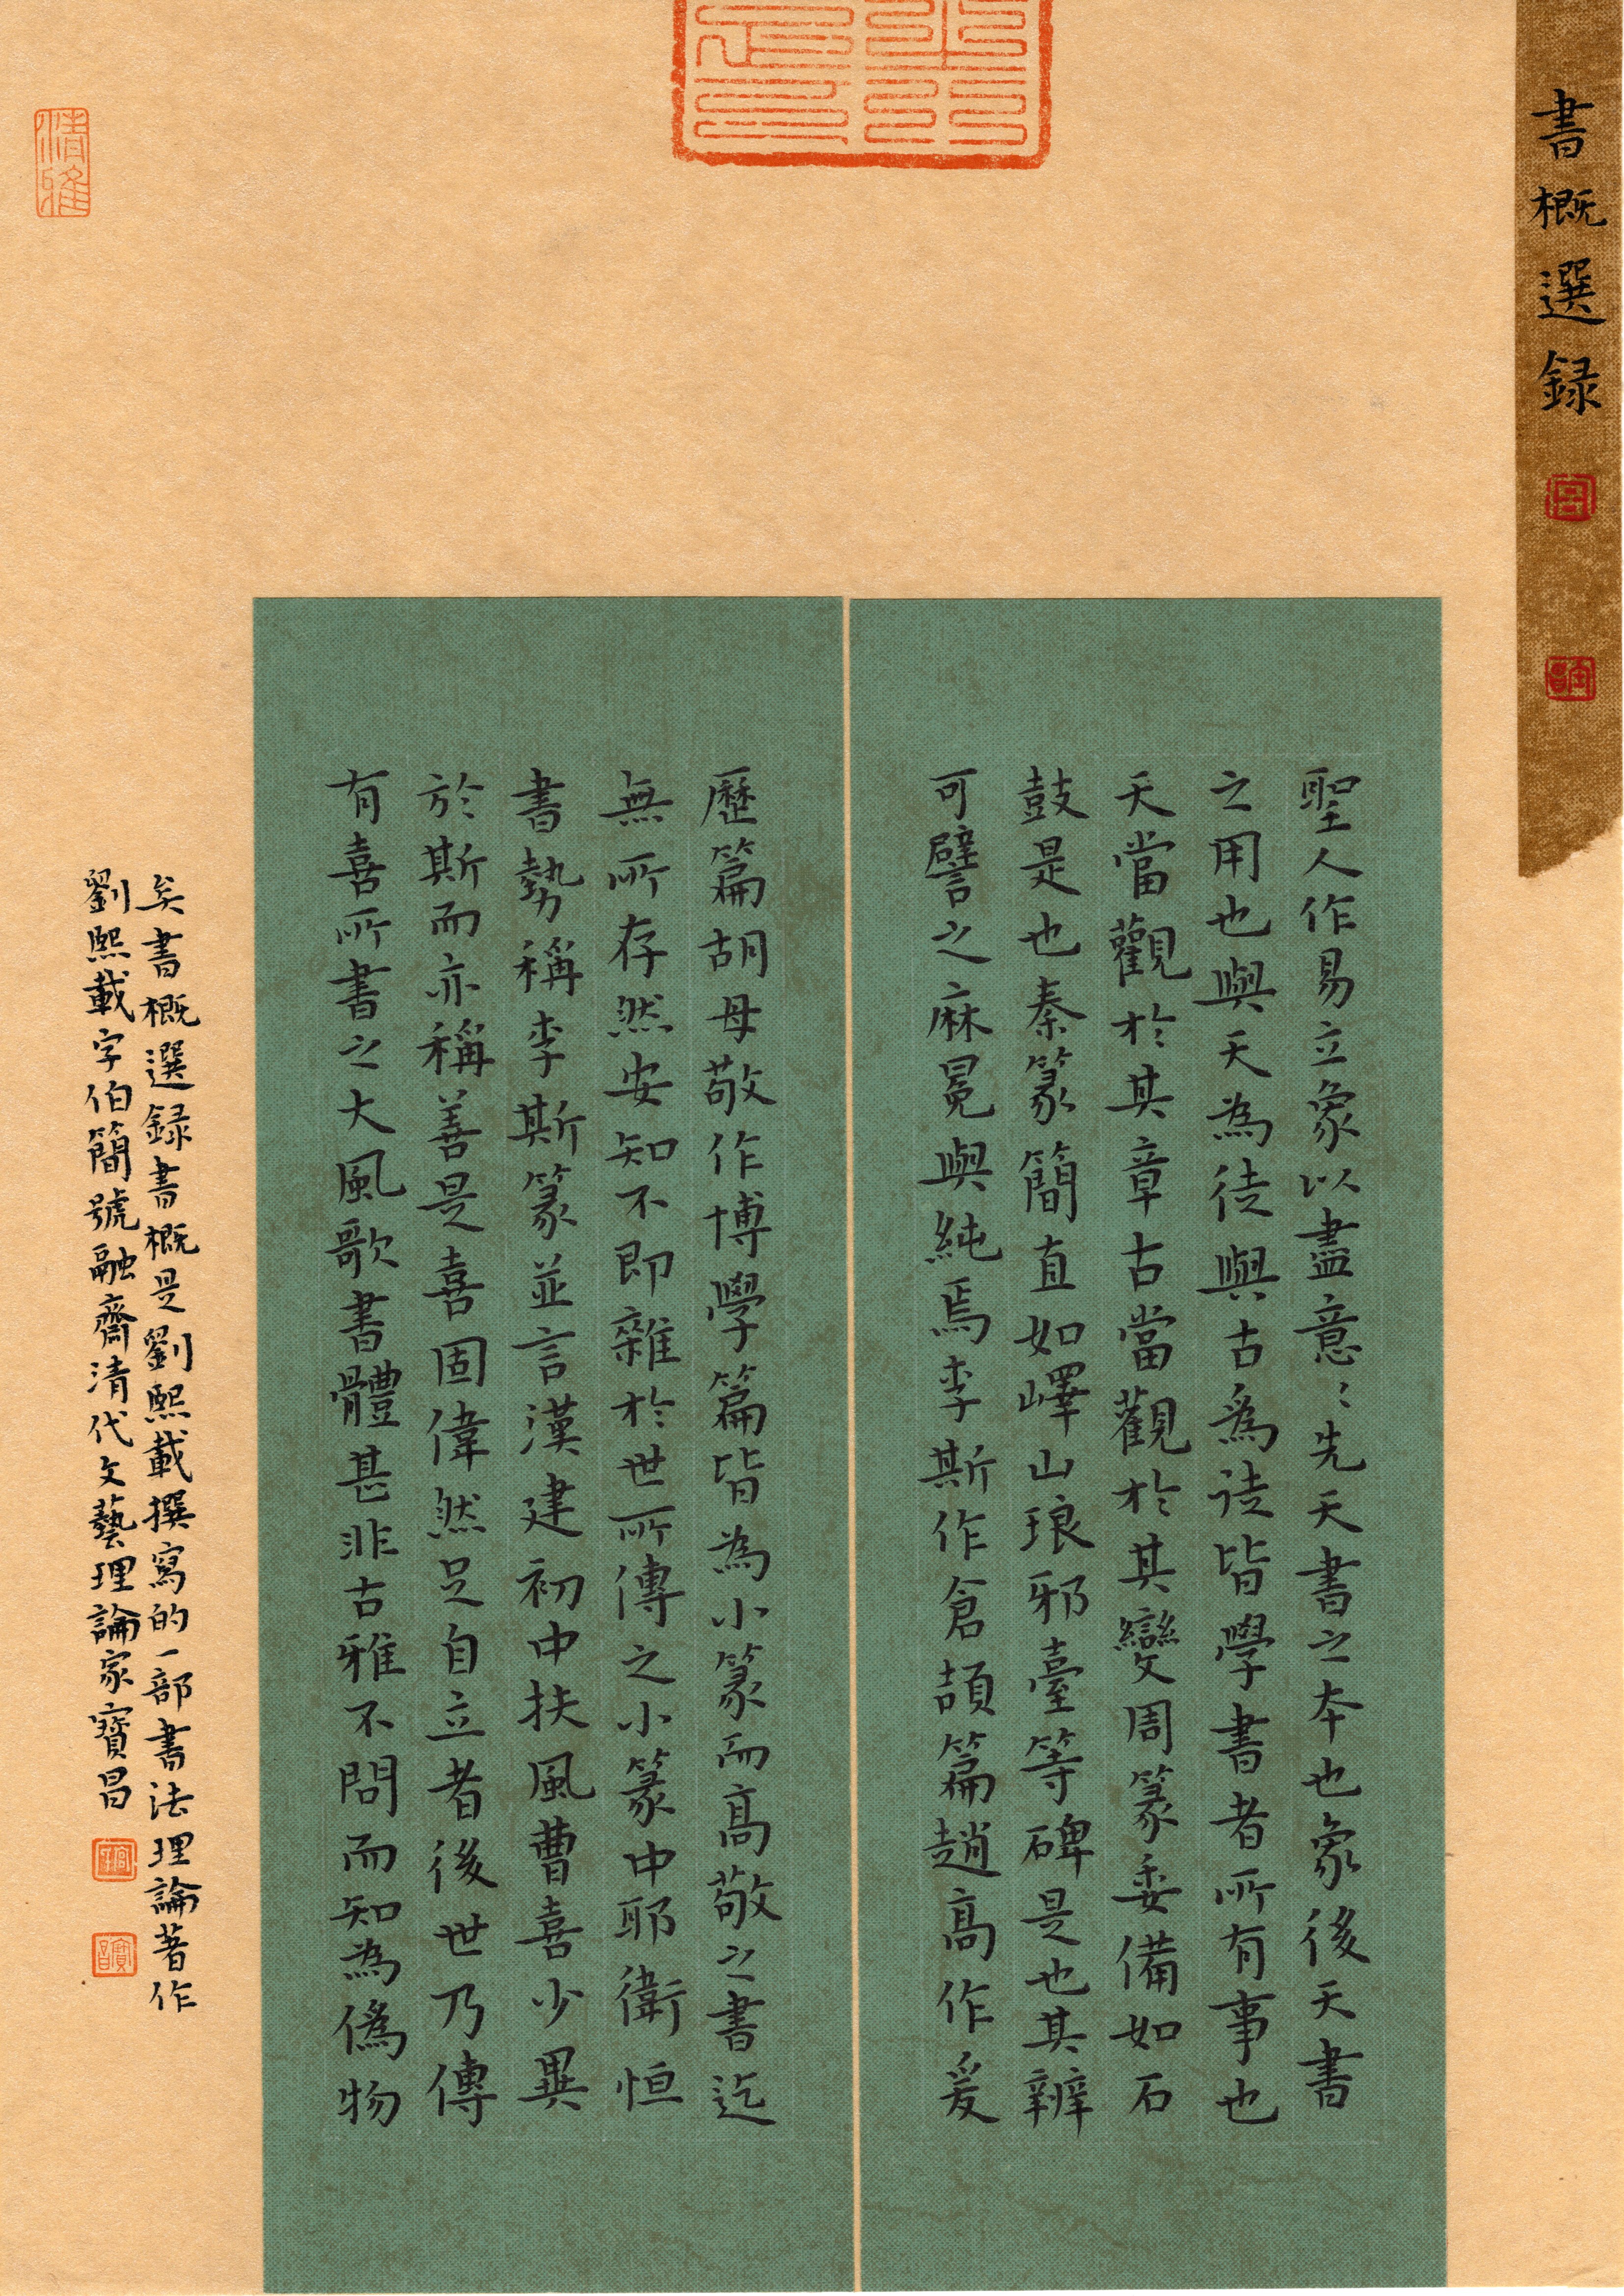 書概選録
聖人作易立象以盡意〻先天書之本也象後天書
之用也與天為徒與古爲徒皆學書者所有事也
天當觀於其章古當觀於其變周篆委備如石
鼓是也秦篆簡直如嶧山琅邪臺等碑是也其辨
可譬之麻冕與純焉李斯作倉頡篇趙高作爰
歷篇胡母敬作博學篇皆為小篆而高敬之書迄
無所存然安知不即雜於世所傳之小篆中耶衛恒
書勢稱李斯篆並言漢建初中扶風曹喜少異
於斯而亦稱善是喜固偉然足自立者後世乃傳
有喜所書之大風歌書體甚非古雅不問而知為僞物
矣書概選録書概是劉熙載撰寫的一部書法理論著作
劉熙載字伯簡號融齋清代文藝理論家寶昌
清雅